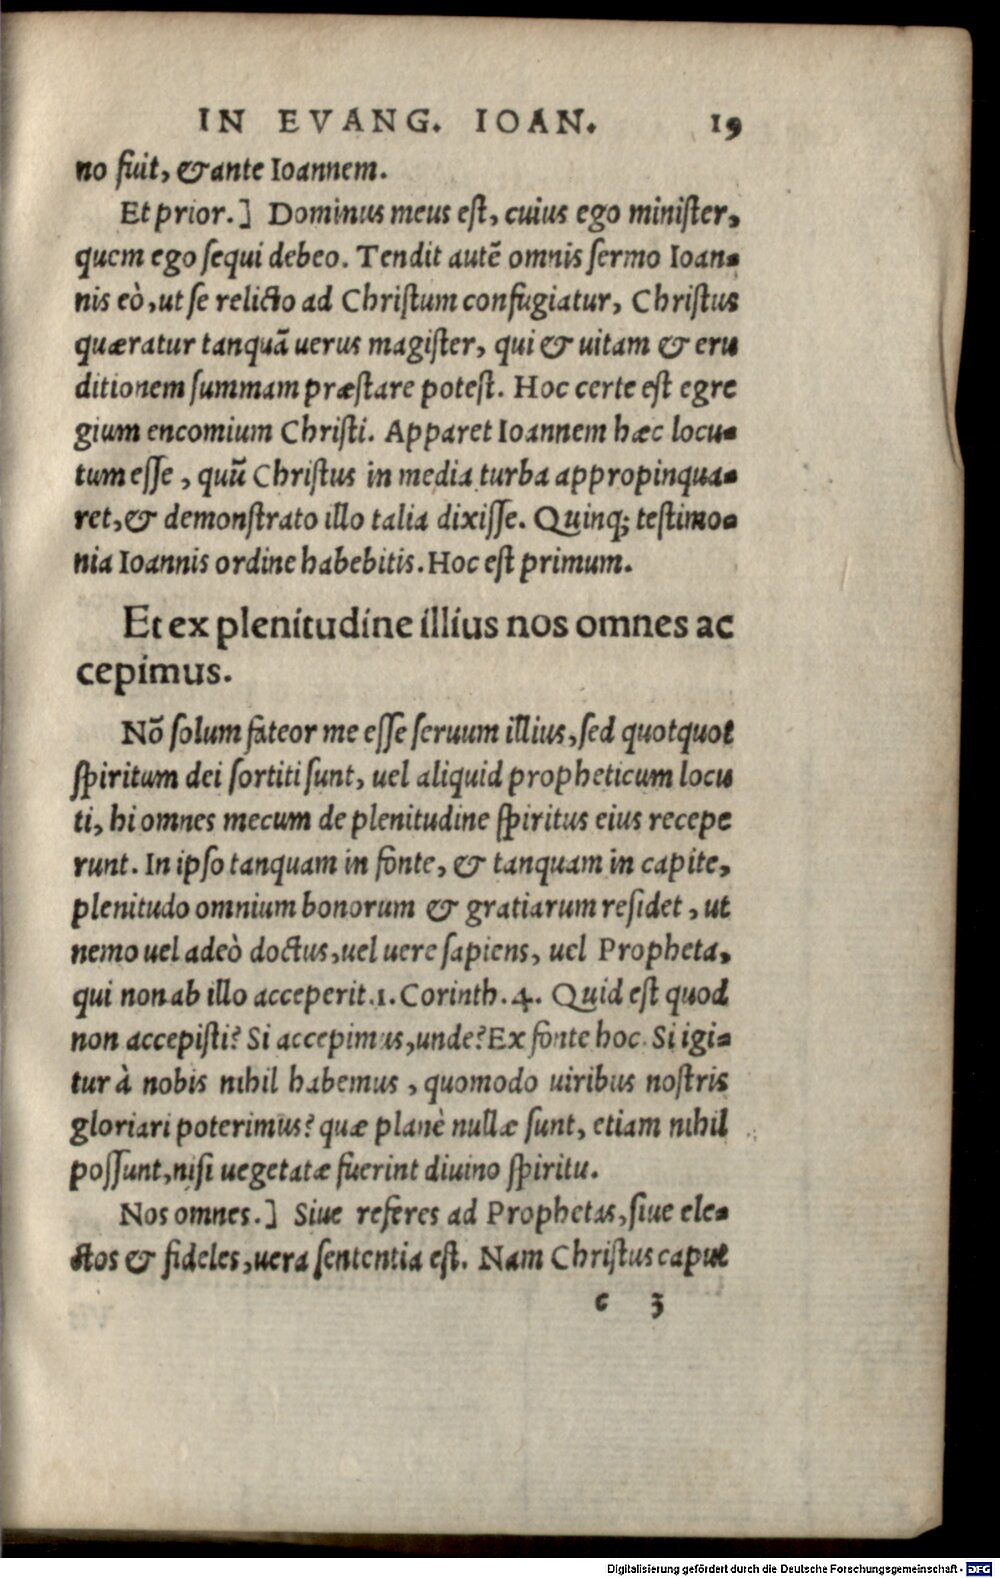 IN EVANG. IOAN. 19
no fuit, & ante Ioannem.
Et prior.] Dominus meus est, cuius ego minister,
quem ego sequi debeo. Tendit autẽ omnis sermo Ioan-
nis eò, ut se relicto ad Christum confugiatur, Christus
quæratur tanquã uerus magister, qui & uitam & eru
ditionem summam præstare potest. Hoc certe est egre
gium encomium Christi. Apparet Ioannem hæc locu-
tum esse, quũ Christus in media turba appropinqua-
ret, & demonstrato illo talia dixisse. Quinq; testimo-
nia Ioannis ordine habebitis. Hoc est primum.
Et ex plenitudine illius nos omnes ac
cepimus.
Nõ solum fateor me esse seruum illius, sed quotquot
spiritum dei sortiti sunt, uel aliquid propheticum locu
ti, hi omnes mecum de plenitudine spiritus eius recepe
runt. In ipso tanquam in fonte, & tanquam in capite,
plenitudo omnium bonorum & gratiarum residet, ut
nemo uel adeò doctus, uel uere sapiens, uel Propheta,
qui non ab illo acceperit. 1. Corinth. 4. Quid est quod
non accepisti? Si accepimus, unde? Ex fonte hoc. Si igi-
tur à nobis nihil habemus, quomodo uiribus nostris
gloriari poterimus? quæ planè nullæ sunt, etiam nihil
possunt, nisi uegetatæ fuerint diuino spiritu.
Nos omnes.] Siue referes ad Prophetas, siue ele-
ctos & fideles, uera sententia est. Nam Christus caput
c 3
Digitalisierung gefördert durch die Deutsche Forschungsgemeinschaft - DFG